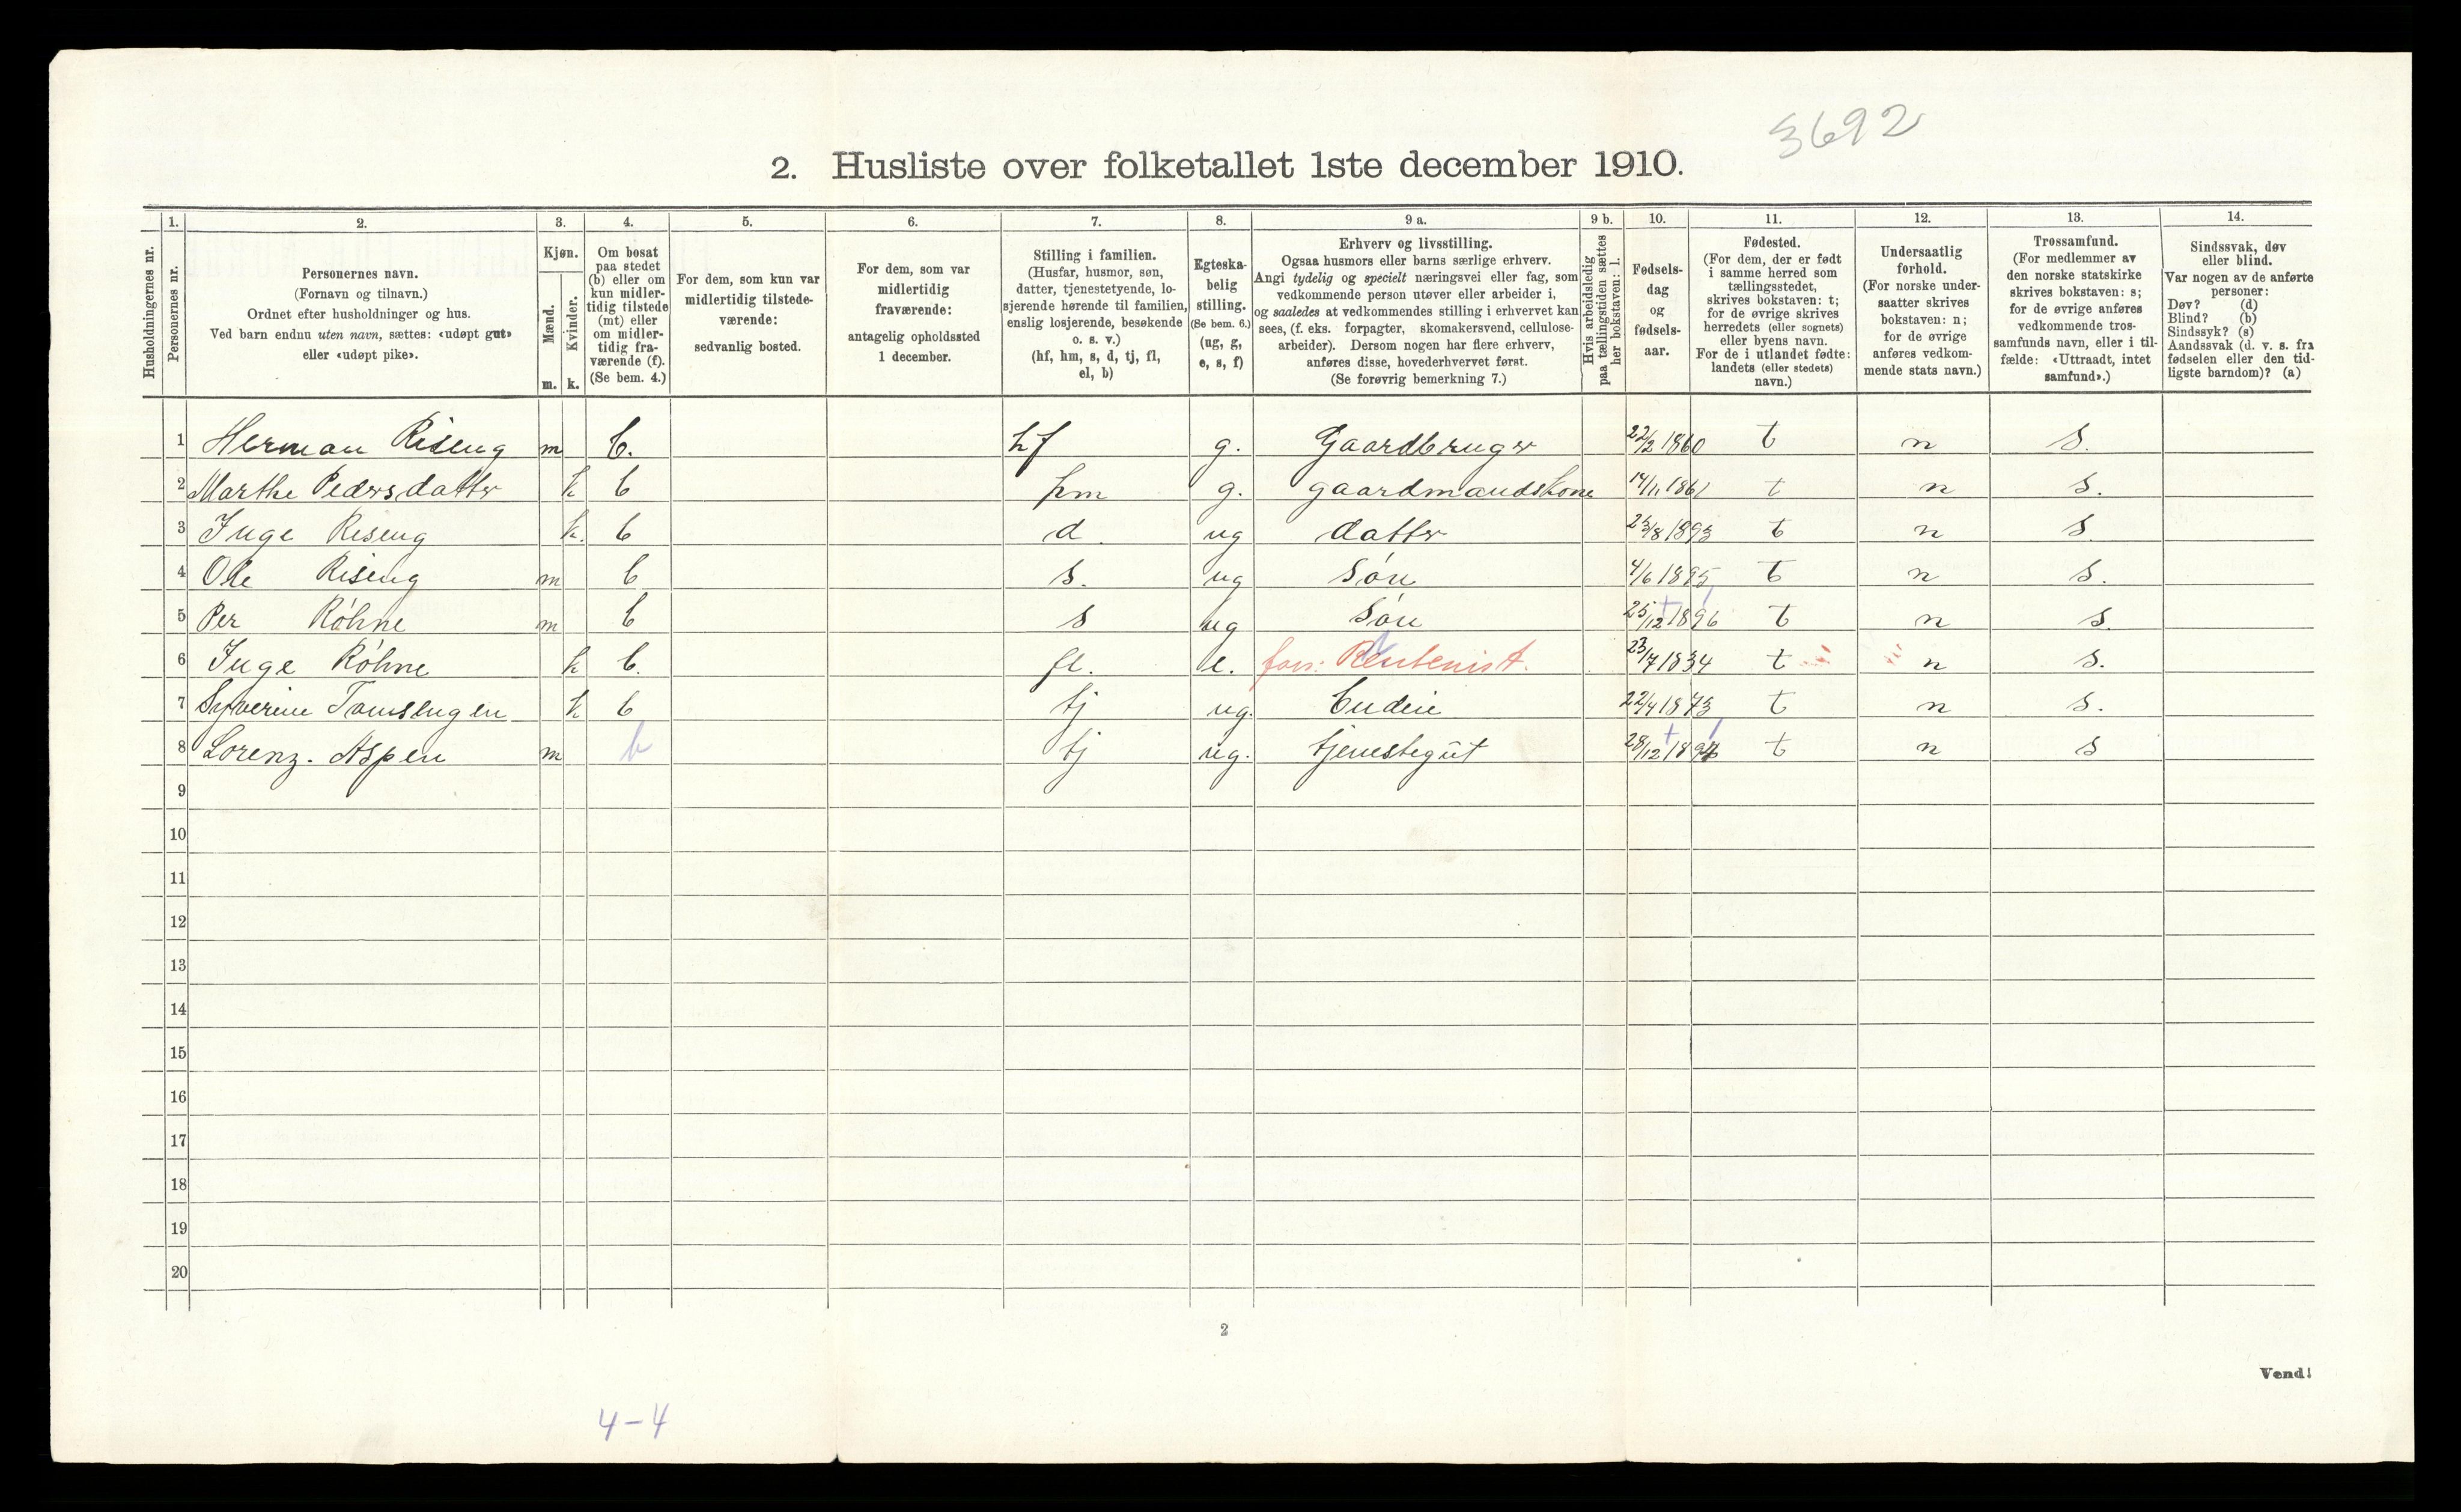 3692
2. Husliste over folketallet 1ste december 1910.
Husholdningernes nr.
1.
Personernes nr.
2.
Personernes navn.
(Fornavn og tilnavn.)
Ordnet efter husholdninger og hus.
Ved barn endnu uten navn, sættes: «udøpt gut»
eller «udøpt pike».
3.
Kjøn.
Mænd.
Kvinder.
m. k.
4.
Om bosat
paa stedet
(b) eller om
kun midler-
tidig tilstede
(mt) eller
om midler-
tidig fra-
værende (f).
(Se bem. 4.)
5.
For dem, som kun var
midlertidig tilstede-
værende:
sedvanlig bosted.
6.
For dem, som var
midlertidig
fraværende:
antagelig opholdssted
1 december.
7.
Stilling i familien.
(Husfar, husmor, søn,
datter, tjenestetyende, lo-
sjerende hørende til familien,
enslig losjerende, besøkende
o. s. v.)
(hf, hm, s, d, tj, fl,
el, b)
8.
Egteska-
belig
stilling.
(Se bem. 6.)
(ug, g,
e, s, f)
9 a.
Erhverv og livsstilling.
Ogsaa husmors eller barns særlige erhverv.
Angi tydelig og specielt næringsvei eller fag, som
vedkommende person utøver eller arbeider i,
og saaledes at vedkommendes stilling i erhvervet kan
sees, (f. eks. forpagter, skomakersvend, cellulose-
arbeider). Dersom nogen har flere erhverv,
anføres disse, hovederhvervet først.
(Se forøvrig bemerkning 7.)
9 b.
Hvis arbeidsledig
paa tællingstiden sættes
her bokstaven: l.
10.
Fødsels-
dag
og
fødsels-
aar.
11.
Fødested.
(For dem, der er født
i samme herred som
tællingsstedet,
skrives bokstaven: t;
for de øvrige skrives
herredets (eller sognets)
eller byens navn.
For de i utlandet fødte:
landets (eller stedets)
navn.)
12.
Undersaatlig
forhold.
(For norske under-
saatter skrives
bokstaven: n;
for de øvrige
anføres vedkom-
mende stats navn.)
13.
Trossamfund.
(For medlemmer av
den norske statskirke
skrives bokstaven: s;
for de øvrige anføres
vedkommende tros-
samfunds navn, eller i til-
fælde: «Uttraadt, intet
samfund».)
14.
Sindssvak, døv
eller blind.
Var nogen av de anførte
personer:
Døv? (d)
Blind? (b)
Sindssyk? (s)
Aandssvak (d. v. s. fra
fødselen eller den tid-
ligste barndom)? (a)
1 Herman Riseng m b. hf g. Gaardbruger 22/2 1860 t n s.
2 Marthe Pedersdatter k b hm g. gaardmandskone 14/11 1861 t n s.
3 Inge Riseng k. b d. ug datter 23/8 1893 t n s.
4 Ole Riseng m b s. ug Søn 4/6 1895 t n s.
5 Per Röhne m b s ug Søn 25/12 1896 t n s.
6 Inge Röhne k b. fl. e. fors: Rentenist. 23/7 1834 t n s.
7 Syverine Tamsengen k b tj ug. budeie 22/4 1873 t n s.
8 Lorenz. Aspen m b tj ug. tjenestegut 28/12 t n s
9
10
11
12
13
14
15
16
17
18
19
20
2
Vend!
4-4